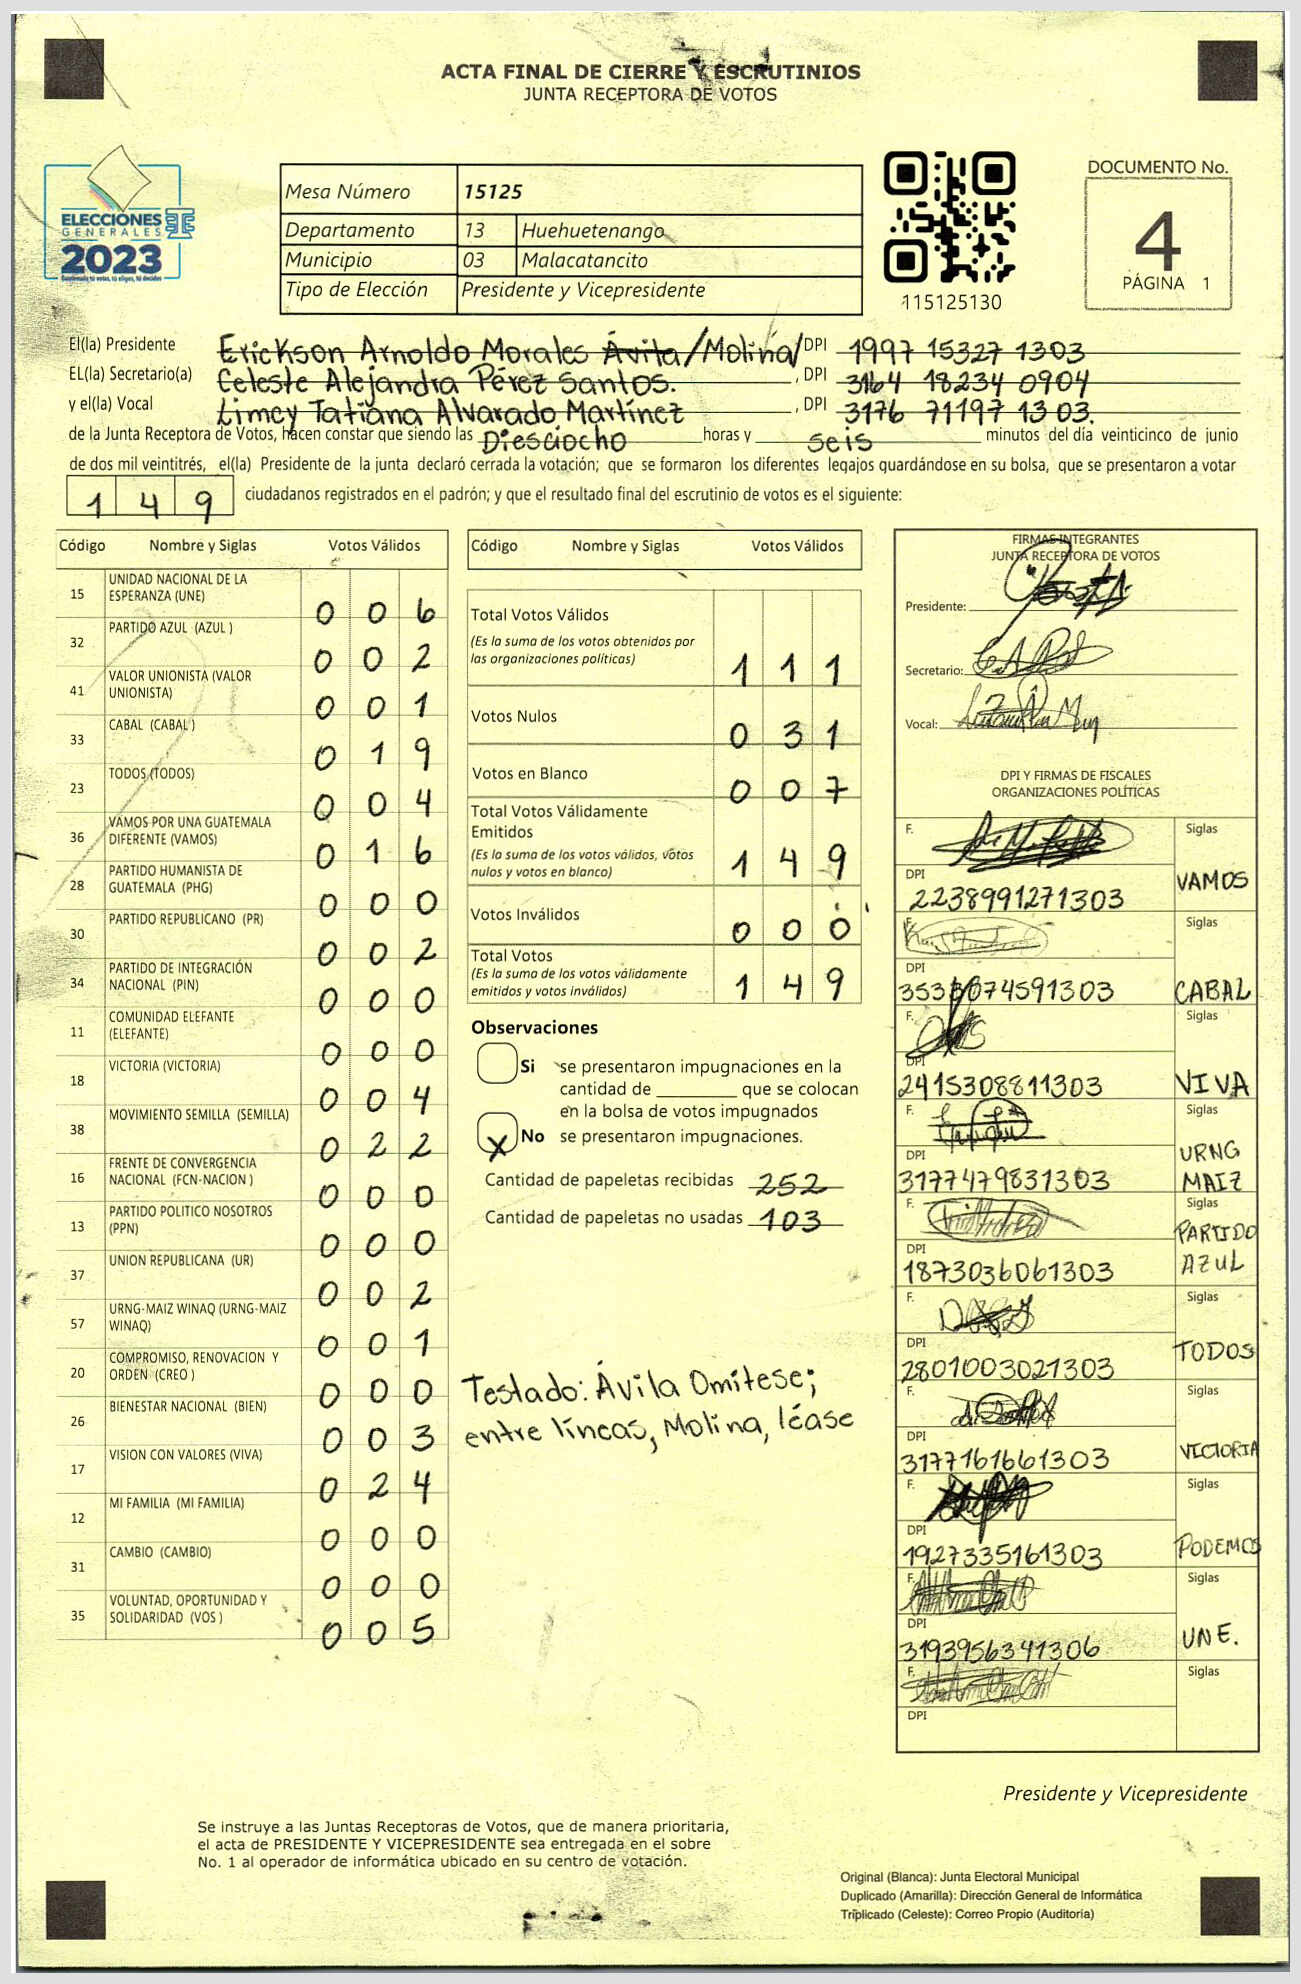 ACTA FINAL DE CIERRE Y ESCRUTINIOS
JUNTA RECEPTORA DE VOTOS
ELECCIONES
GENERALES
2023
Mesa Número 15125
Departamento 13 Huehuetenango
Municipio 03 Malacatancito
Tipo de Elección Presidente y Vicepresidente
115125130
DOCUMENTO No.
4
PÁGINA 1
El(la) Presidente Erickson Arnoldo Morales Ávita /Molina/ DPI 1997 15327 1303
EL(la) Secretario(a) Celeste Alejandra Pérez Santos. , DPI 3164 18234 0904
y el(la) Vocal Limcy Tatiana Alvarado Martínez , DPI 3176 71197 1303.
de la Junta Receptora de Votos, hacen constar que siendo las Diesciocho horas y seis minutos del día veinticinco de junio
de dos mil veintitrés, el(la) Presidente de la junta declaró cerrada la votación; que se formaron los diferentes legajos guardándose en su bolsa, que se presentaron a votar
149 ciudadanos registrados en el padrón; y que el resultado final del escrutinio de votos es el siguiente:
Código Nombre y Siglas Votos Válidos
15 UNIDAD NACIONAL DE LA ESPERANZA (UNE) 006
32 PARTIDO AZUL (AZUL ) 002
41 VALOR UNIONISTA (VALOR UNIONISTA) 001
33 CABAL (CABAL ) 019
23 TODOS (TODOS) 004
36 VAMOS POR UNA GUATEMALA DIFERENTE (VAMOS) 016
28 PARTIDO HUMANISTA DE GUATEMALA (PHG) 000
30 PARTIDO REPUBLICANO (PR) 002
34 PARTIDO DE INTEGRACIÓN NACIONAL (PIN) 000
11 COMUNIDAD ELEFANTE (ELEFANTE) 000
18 VICTORIA (VICTORIA) 004
38 MOVIMIENTO SEMILLA (SEMILLA) 022
16 FRENTE DE CONVERGENCIA NACIONAL (FCN-NACION ) 000
13 PARTIDO POLITICO NOSOTROS (PPN) 000
37 UNION REPUBLICANA (UR) 002
57 URNG-MAIZ WINAQ (URNG-MAIZ WINAQ) 001
20 COMPROMISO, RENOVACION Y ORDEN (CREO ) 000
26 BIENESTAR NACIONAL (BIEN) 003
17 VISION CON VALORES (VIVA) 024
12 MI FAMILIA (MI FAMILIA) 000
31 CAMBIO (CAMBIO) 000
35 VOLUNTAD, OPORTUNIDAD Y SOLIDARIDAD (VOS ) 005
Código Nombre y Siglas Votos Válidos
Total Votos Válidos
(Es la suma de los votos obtenidos por
las organizaciones políticas) 111
Votos Nulos 031
Votos en Blanco 007
Total Votos Válidamente
Emitidos
(Es la suma de los votos válidos, votos
nulos y votos en blanco) 149
Votos Inválidos 000
Total Votos
(Es la suma de los votos válidamente
emitidos y votos inválidos) 149
Observaciones
Si se presentaron impugnaciones en la
cantidad de ________ que se colocan
en la bolsa de votos impugnados
X No se presentaron impugnaciones.
Cantidad de papeletas recibidas 252
Cantidad de papeletas no usadas 103
Testado: Ávila Omítese;
entre líneas, Molina, léase
FIRMAS INTEGRANTES
JUNTA RECEPTORA DE VOTOS
Presidente:
Secretario:
Vocal:
DPI Y FIRMAS DE FISCALES
ORGANIZACIONES POLÍTICAS
F. Siglas
DPI 2238991271303 VAMOS
F. Siglas
DPI CABAL
F. Siglas
DPI 2415308811303 VIVA
F. Siglas
DPI 3177479831303 URNG MAIZ
F. Siglas
DPI 1873036061303 PARTIDO AZUL
F. Siglas
DPI 2801003021303 TODOS
F. Siglas
DPI 3177161661303 VICTORIA
F. Siglas
DPI 1927335161303 PODEMOS
F. Siglas
DPI 3193956341306 UNE.
F. Siglas
DPI
Presidente y Vicepresidente
Se instruye a las Juntas Receptoras de Votos, que de manera prioritaria,
el acta de PRESIDENTE Y VICEPRESIDENTE sea entregada en el sobre
No. 1 al operador de informática ubicado en su centro de votación.
Original (Blanca): Junta Electoral Municipal
Duplicado (Amarilla): Dirección General de Informática
Triplicado (Celeste): Correo Propio (Auditoria)